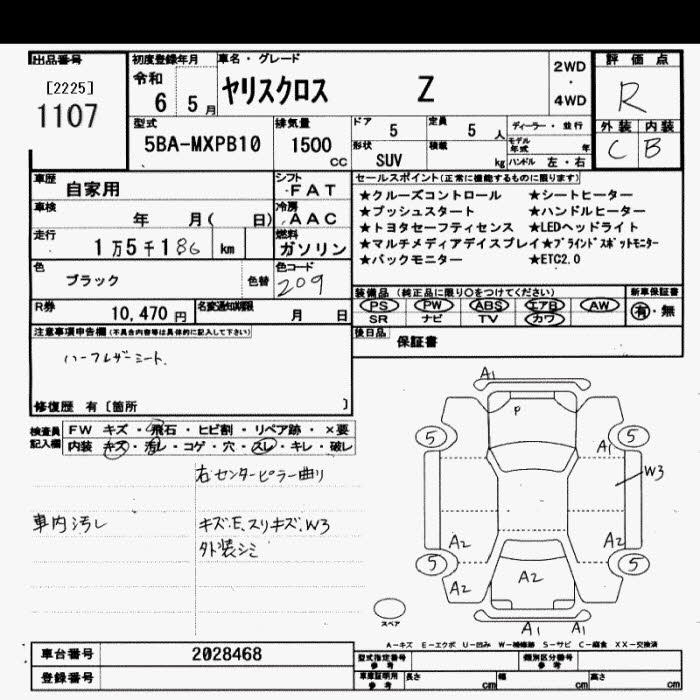 出品番号
[2225]
1107
初度登録年月
令和
6 5月
車名・グレード
ヤリスクロス Z
2WD
・
4WD
評価点
R
外装 内装
C B
型式
5BA-MXPB10
排気量
1500
cc
ドア
5
定員
5 人
形状
SUV
積載
kg
ディーラー・並行
モデル年式 年
ハンドル 左・右
車歴
自家用
シフト
FAT
車検
年 月( 日)
冷房
AAC
走行
1万5千186 km
燃料
ガソリン
色
ブラック
色替
色コード
209
R券
10,470 円
名変通知期限
月 日
セールスポイント(正常に機能するものに限ります)
★クルーズコントロール ★シートヒーター
★プッシュスタート ★ハンドルヒーター
★トヨタセーフティセンス ★LEDヘッドライト
★マルチメディアデイスプレイ★ブラインドスポットモニター
★バックモニター ★ETC2.0
装備品(純正品に限り○をつけてください)
新車保証書
PS PW ABS エアB AW
有・無
SR ナビ TV カワ
後日品
保証書
注意事項申告欄(不具合内容等は具体的に記入して下さい)
ハーフレザーシート.
修復歴 有〔箇所 〕
検査員記入欄
FW キズ・飛石・ヒビ割・リペア跡・×要
内装 キズ・汚レ・コゲ・穴・スレ・キレ・破レ
右センターピラー曲り
車内汚レ
キズ.E.スリキズ.W3
外装シミ
A1
P
5
5
A1
W3
A2
A2
5
A2
A2
5
A1
A1
スペア
A-キズ E-エクボ U-凹み W-補修跡 S-サビ C-腐食 XX-交換済
車台番号
2028468
登録番号
型式指定番号
参考
類別区分番号
参考
車庫証明用
参考
長さ cm
幅 cm
高さ cm